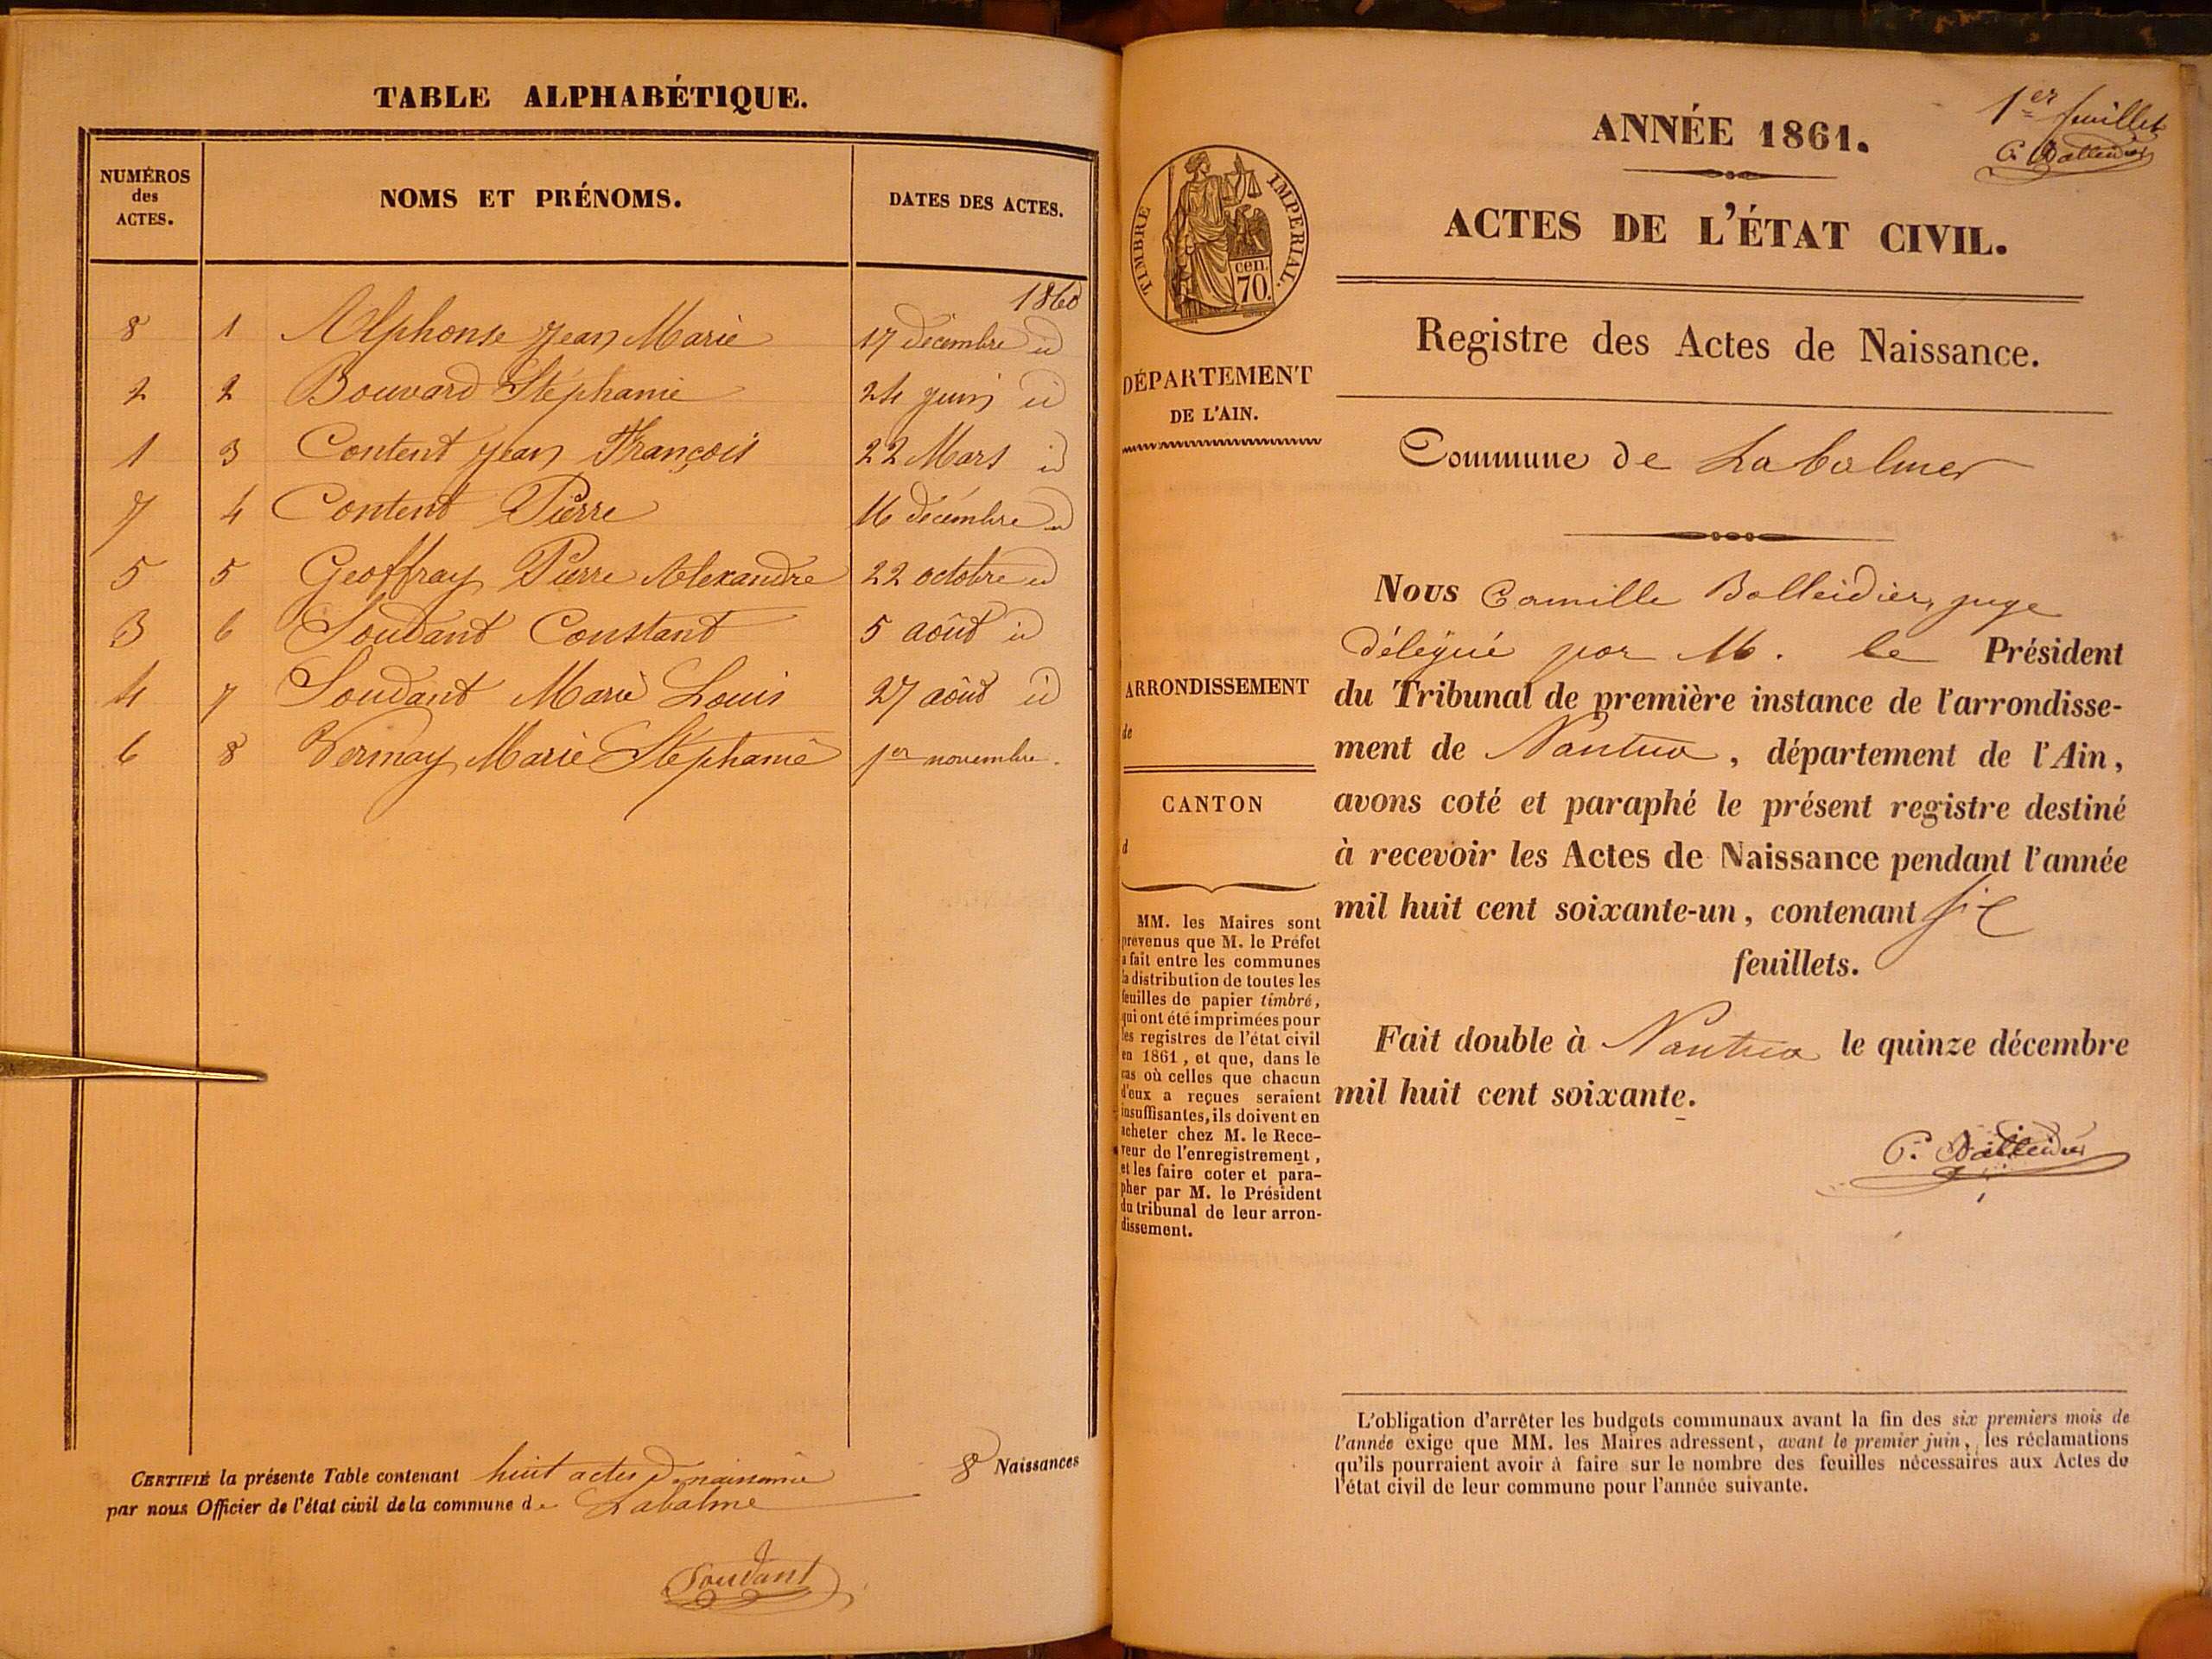 TABLE ALPHABÉTIQUE.
NUMÉROS des ACTES.
NOMS ET PRÉNOMS.
DATES DES ACTES.
1860
8 1 Alphonse Jean Marie 17 décembre id
2 2 Bouvard Stéphanie 24 juin id
1 3 Content Jean François 22 Mars id
7 4 Content Pierre 16 décembre id
5 5 Geoffray Pierre Alexandre 22 octobre id
3 6 Soudant Constant 5 août id
4 7 Soudant Marie Louis 27 août id
6 8 Vermay Marie Stéphanie 1er novembre.
CERTIFIÉ la présente Table contenant huit actes de naissance 8 Naissances
par nous Officier de l'état civil de la commune de Labalme
Soudant
1er feuillet
ANNÉE 1861.
ACTES DE L'ÉTAT CIVIL.
TIMBRE IMPÉRIAL.
cen.
70.
Registre des Actes de Naissance.
DÉPARTEMENT
DE L'AIN.
Commune de Labalme
ARRONDISSEMENT
de
CANTON
d
MM. les Maires sont
prévenus que M. le Préfet
a fait entre les communes
la distribution de toutes les
feuilles de papier timbré,
qui ont été imprimées pour
les registres de l'état civil
en 1861, et que, dans le
cas où celles que chacun
d'eux a reçues seraient
insuffisantes, ils doivent en
acheter chez M. le Rece-
veur de l'enregistrement,
et les faire coter et para-
pher par M. le Président
du tribunal de leur arron-
dissement.
Nous Camille Balleidier, juge
délégué par M. le Président
du Tribunal de première instance de l'arrondisse-
ment de Nantua, département de l'Ain,
avons coté et paraphé le présent registre destiné
à recevoir les Actes de Naissance pendant l'année
mil huit cent soixante-un, contenant six
feuillets.
Fait double à Nantua le quinze décembre
mil huit cent soixante.
C. Balleidier
L'obligation d'arrêter les budgets communaux avant la fin des six premiers mois de
l'année exige que MM. les Maires adressent, avant le premier juin, les réclamations
qu'ils pourraient avoir à faire sur le nombre des feuilles nécessaires aux Actes de
l'état civil de leur commune pour l'année suivante.